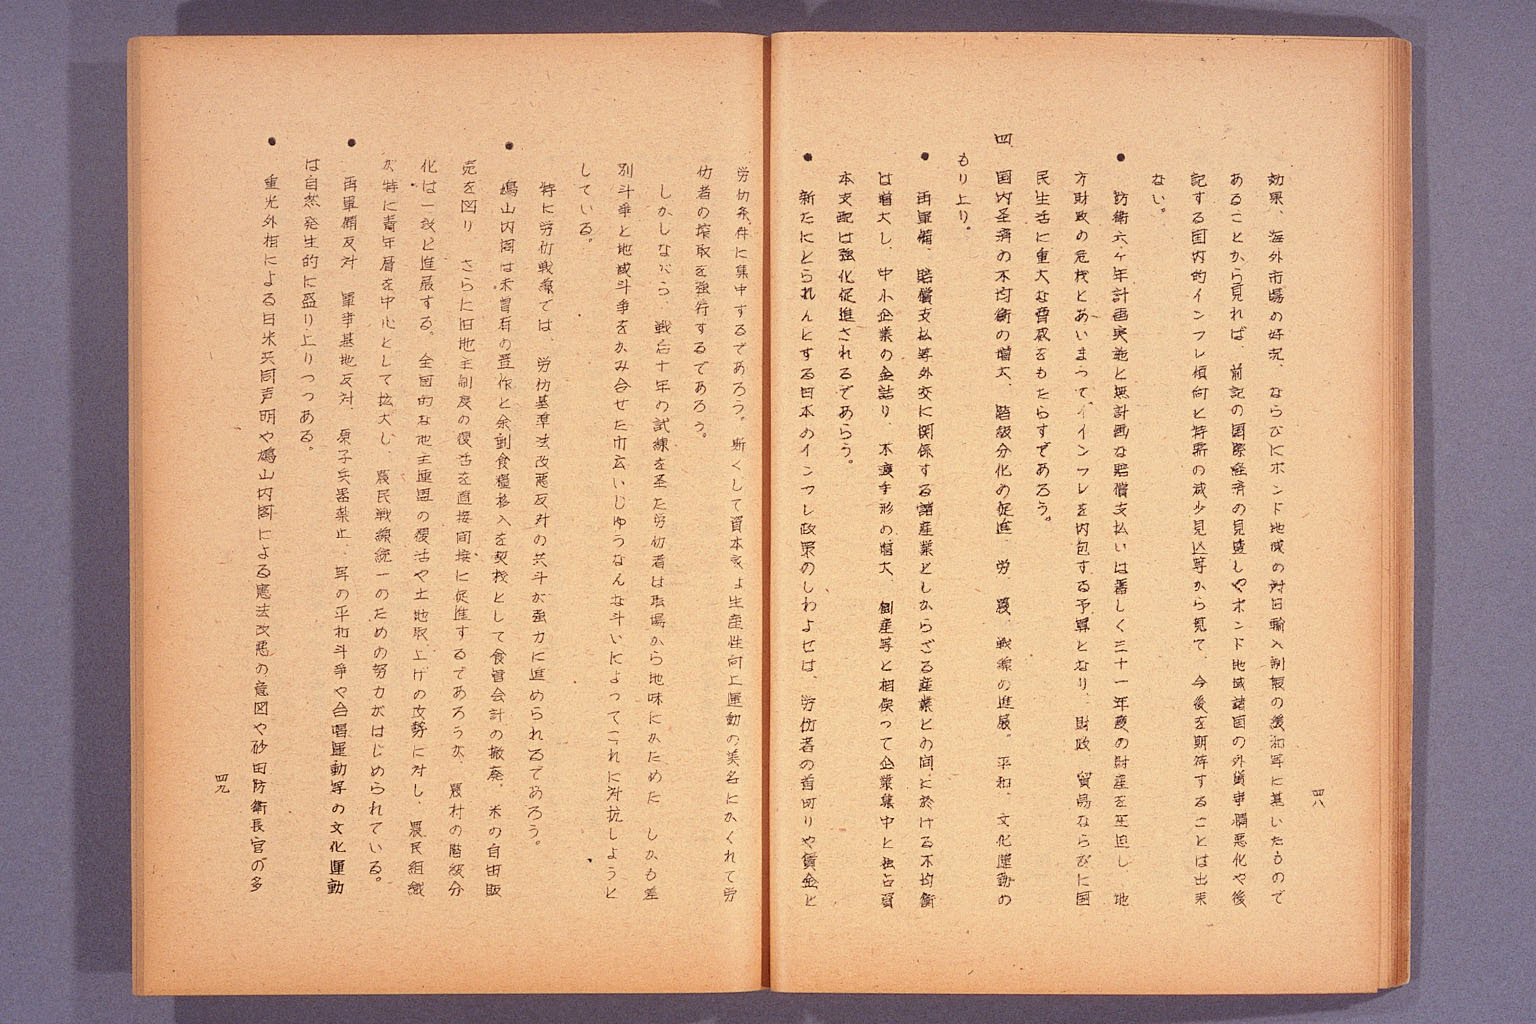 効果、海外市場の好況、ならびにポンド地域の対日輸入制限の緩和等に基いたもので
あることから見れば、前記の国際経済の見透しやポンド地域諸国の外貨事情悪化や後
記する国内的インフレ傾向と特需の減少見込等から見て、今後を期待することは出来
ない。
● 防衛六ヶ年計画実施と無計画な賠償支払いは著しく三十一年度の財産を圧迫し、地
方財政の危機とあいまってインフレを内包する予算となり、財政、貿易ならびに国
民生活に重大な脅威をもたらすであろう。
四、国内圣済の不均衡の増大、階級分化の促進、労、農、戦線の進展。平和、文化運動の
もり上り。
● 再軍備、賠償支払等外交に関係する諸産業としからざる産業との間に於ける不均衡
は増大し、中小企業の金詰り、不渡手形の増大、倒産等と相俟って企業集中と独占資
本支配は強化促進されるであらう。
● 新たにとられんとする日本のインフレ政策のしわよせは、労仂者の首切りや賃金と
四八
労仂条件に集中するであろう。斯くして資本家は生産性向上運動の美名にかくれて労
仂者の搾取を強行するであろう。
しかしながら、戦后十年の試練を圣た労仂者は職場から地味にかためた、しかも差
別斗争と地域斗争をかみ合せた巾広いじゆうなんな斗いによってこれに対抗しようと
している。
特に労仂戦線では、労仂基準法改悪反対の共斗が強力に進められるであろう。
● 鳩山内閣は未曽有の豊作と余剰食糧移入を契機として食管会計の撤廃、米の自由販
売を図り、さらに旧地主制度の復活を直接間接に促進するであろうが、農村の階級分
化は一段と進展する。全国的な地主連盟の復活や土地取上げの攻勢に対し、農民組織
が特に青年層を中心として拡大し、農民戦線統一のための努力がはじめられている。
● 再軍備反対、軍事基地反対、原子兵器禁止、等の平和斗争や合唱運動等の文化運動
は自然発生的に盛り上りつつある。
● 重光外相による日米共同声明や鳩山内閣による憲法改悪の意図や砂田防衛長官の多
四九